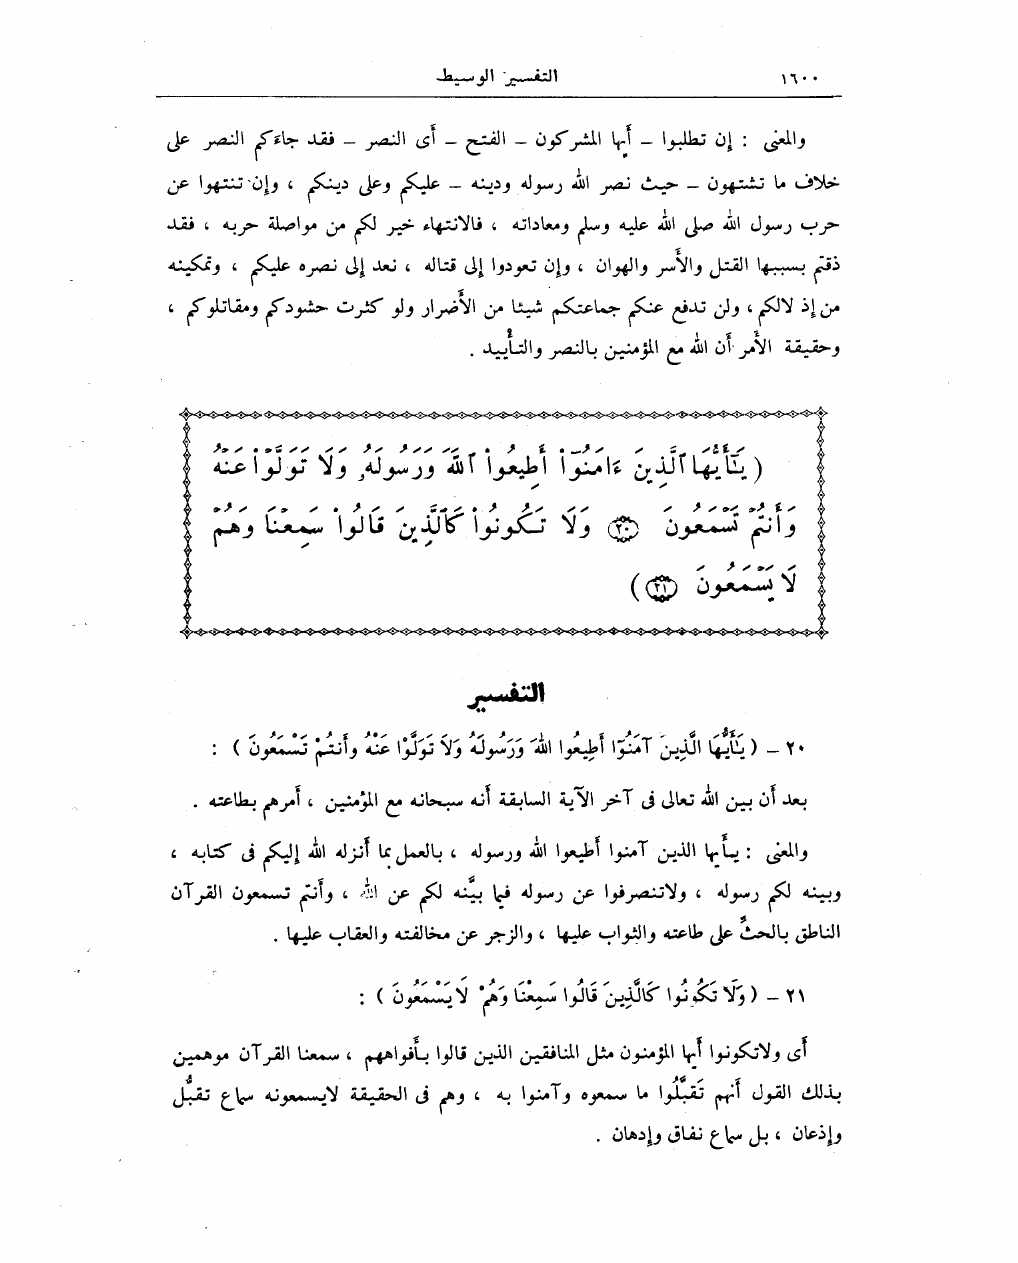 ١٦٠٠ التفسير الوسيط
والمعنى : إن تطلبوا – أيها المشركون – الفتح – أى النصر – فقد جاءكم النصر على
خلاف ما تشتهون – حيث نصر الله رسوله ودينه – عليكم وعلى دينكم ، وإن تنتهوا عن
حرب رسول الله صلى الله عليه وسلم ومعاداته ، فالانتهاء خير لكم من مواصلة حربه ، فقد
ذقتم بسببها القتل والأسر والهوان ، وإن تعودوا إلى قتاله ، نعد إلى نصره عليكم ، وتمكينه
من إذ لالكم ، ولن تدفع عنكم جماعتكم شيئا من الأضرار ولو كثرت حشودكم ومقاتلوكم ،
وحقيقة الأمر أن الله مع المؤمنين بالنصر والتأييد .
(يَـٰٓأَيُّهَا ٱلَّذِينَ ءَامَنُوٓا۟ أَطِيعُوا۟ ٱللَّهَ وَرَسُولَهُۥ وَلَا تَوَلَّوْا۟ عَنْهُ
وَأَنتُمْ تَسْمَعُونَ ﴿٢٠﴾ وَلَا تَكُونُوا۟ كَٱلَّذِينَ قَالُوا۟ سَمِعْنَا وَهُمْ
لَا يَسْمَعُونَ ﴿٢١﴾)
التفسير
٢٠ – ( يَـٰٓأَيُّهَا الَّذِينَ آمَنُوٓا أَطِيعُوا اللهَ وَرَسُولَهُ وَلَا تَوَلَّوْا عَنْهُ وَأَنتُمْ تَسْمَعُونَ ) :
بعد أن بين الله تعالى فى آخر الآية السابقة أنه سبحانه مع المؤمنين ، أمرهم بطاعته .
والمعنى : يأيها الذين آمنوا أطيعوا الله ورسوله ، بالعمل بما أنزله الله إليكم فى كتابه ،
وبينه لكم رسوله ، ولاتنصرفوا عن رسوله فيما بيَّنه لكم عن الله ، وأنتم تسمعون القرآن
الناطق بالحثِّ على طاعته والثواب عليها ، والزجر عن مخالفته والعقاب عليها .
٢١ – ( وَلَا تَكُونُوا كَالَّذِينَ قَالُوا سَمِعْنَا وَهُمْ لَا يَسْمَعُونَ ) :
أى ولاتكونوا أيها المؤمنون مثل المنافقين الذين قالوا بأفواههم ، سمعنا القرآن موهمين
بذلك القول أنهم تَقَبَّلُوا ما سمعوه وآمنوا به ، وهم فى الحقيقة لايسمعونه سماع تقبُّل
وإذعان ، بل سماع نفاق وإدهان .